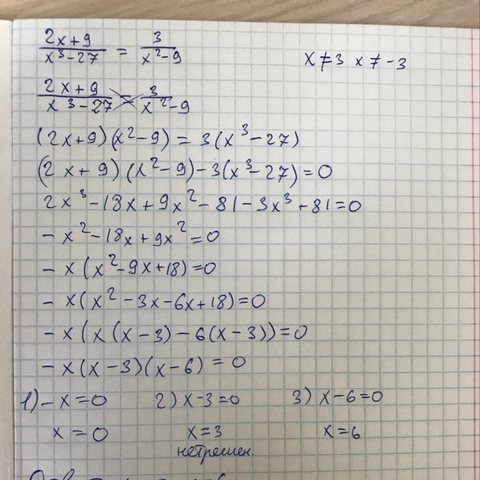 (2x+9)/(x³-27) = 3/(x²-9)    x≠3 x≠-3
(2x+9)/(x³-27) = 3/(x²-9)
(2x+9)(x²-9) = 3(x³-27)
(2x+9)(x²-9)-3(x³-27)=0
2x³-18x+9x²-81-3x³+81=0
-x²-18x+9x²=0
-x(x²-9x+18)=0
-x(x²-3x-6x+18)=0
-x(x(x-3)-6(x-3))=0
-x(x-3)(x-6)=0
1) -x=0    2) x-3=0    3) x-6=0
x=0    x=3    x=6
нет решен.